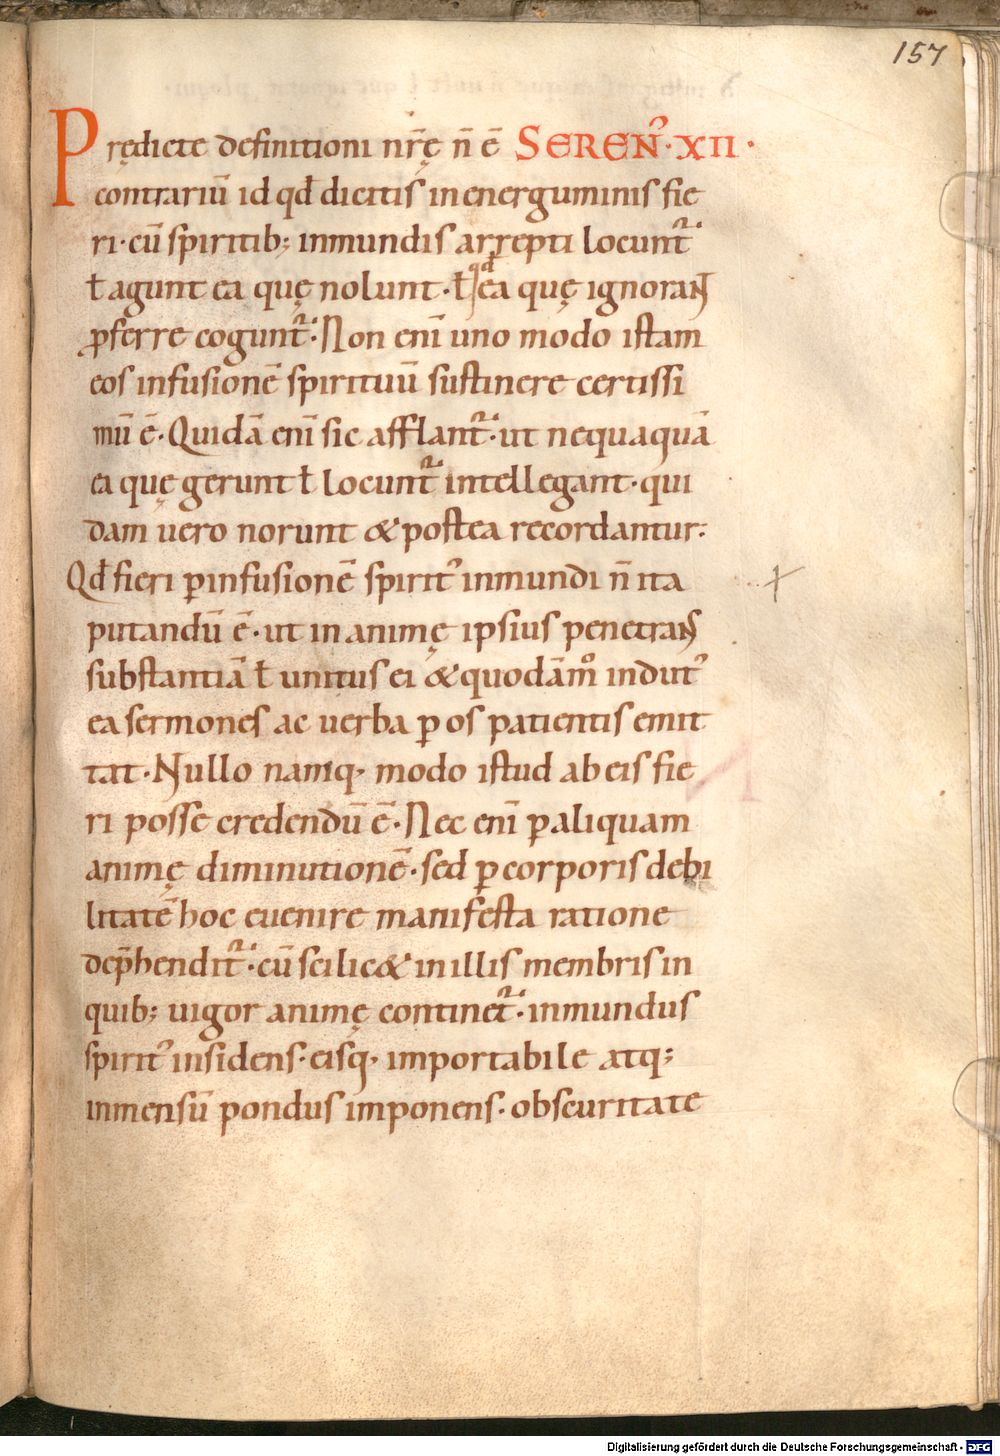 157
Prędicte definitioni nr̄ę n̄ ē SEREN᾽·XII·
contrariū id qđ dicitis in energuminis fie
ri· cū spiritib; inmundis arrepti locunt᷑
ł agunt ea quę nolunt· ł qđ ea quę ignorant
ꝓferre cogunt᷑· Non enī uno modo istam
eos infusionē spirituū sustinere certissi
mū ē· Quidā enī sic afflant᷑· ut nequaquā
ea quę gerunt ł locunt᷑ intellegant· qui
dam uero norunt & postea recordantur.
Qđ fieri ꝑ infusionē spirit᾽ inmundi n̄ ita
putandū ē· ut in animę ipsius penetrans
substantiā ł unitus ei & quodāmͦ indut᾽
ea sermones ac uerba ꝑ os patientis emit
tat· Nullo namq· modo istud ab eis fie
ri posse credendū ē· Nec enī ꝑ aliquam
animę diminutionē· sed ꝑ corporis debi
litatē hoc euenire manifesta ratione
dep̄hendit᷑· cū scilic& in illis membris in
quib; uigor animę continet᷑· inmundus
spirit᾽ insidens· eisq· importabile atq;
inmensū pondus imponens· obscuritate
Digitalisierung gefördert durch die Deutsche Forschungsgemeinschaft - DFG